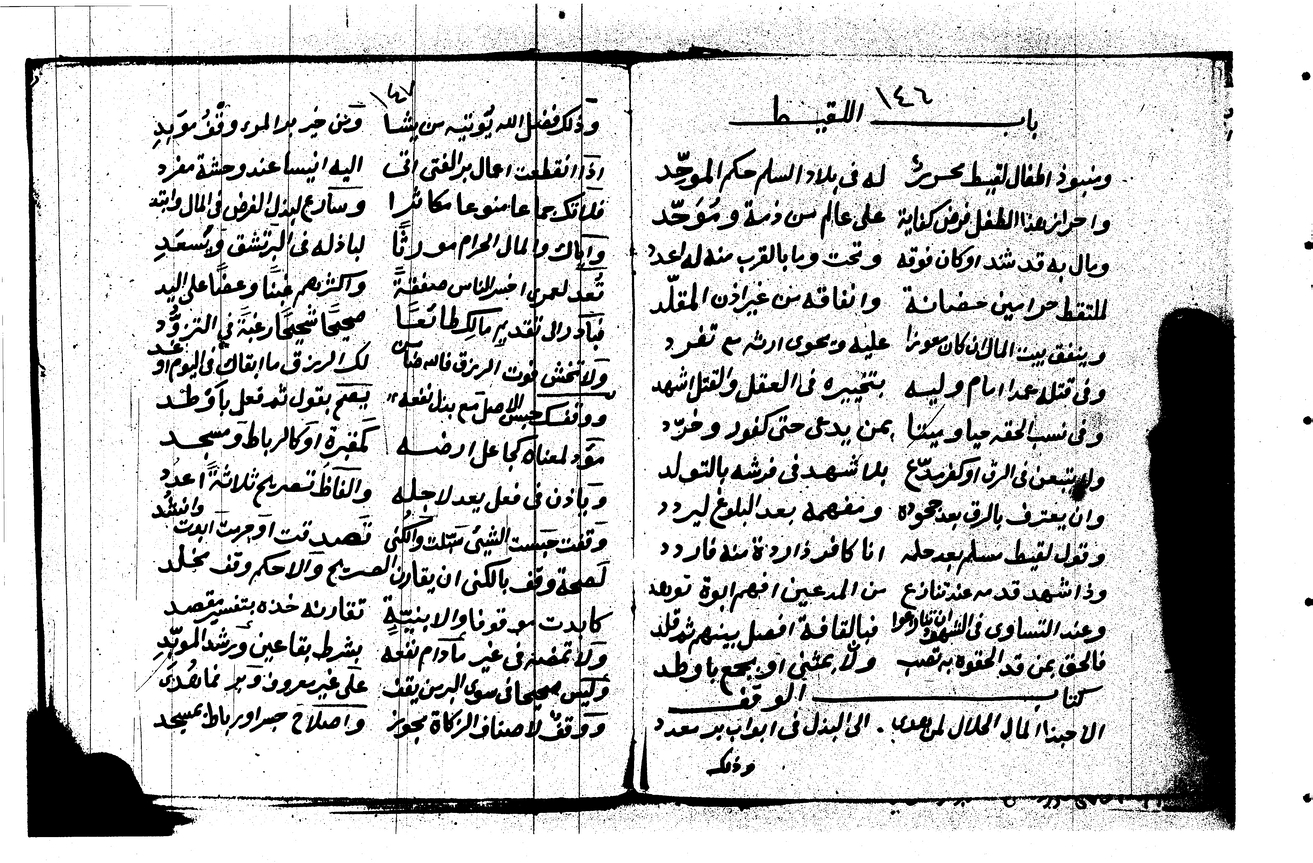 ١٤٦
باب اللقيط
ومنبوذ اطفال لقيط محرر له فى بلاد السلم حكم الموحّد
واحراز هذا الطفل فرض كفاية على عالم من ذمة وموَحّد
ومال به قد شد او كان فوقه وتحت وما بالقرب منه له اعدد
لملتقط حر امين حضانة وانفاقه من غير اذن المقلّد
وينفق بيت المال ان كان معوزا عليه ويحوى ارثه مع تفرد
وفى قتله عمدا امام وليه بتخييره فى العقل والقتل اشهد
وفى نسب الحقه حيا وميتا بمن يدعى حتى كفور وخرّد
ولا يتبعن فى الرق او كفر مدّع بلا شهد فى فرشه بالتولد
وان يعترف بالرق بعد جحوده ومفهمه بعد البلوغ ليردد
وقول لقيط مسلم بعد حلمه انا كافر ذا ردة منه فاردد
وذا شهد قدمه عند تنازع من المدعين افهم ابوة توهد
وعند التساوى فى الشهود فبالقافة افصل بينهم ثم قلد
فالحق بمن قد الحقوه به تصب ولا بمثنى او بجمع باوطد
كتاب الوقف
الا حبذا المال الحلال لمن هدى الى البذل فى ابواب بر معدد
وذلك
١٤٧
وذلك فضل الله يؤتيه من يشا ومن خير بر المرء وقف مؤبد
اذا انقطعت اعمال بر الفتى اتى اليه انيسا عند وحشة مفرد
فلا تك جماعا منوعا مكاثرا وسارع لبذل الفرض فى المال وابتد
واياك والمال الحرام مورثًا لباذله فى البر تشق ويسعد
تُعد لعمرى اخسر الناس صفقةً واكثرهم غبنا وعضا على اليد
فبادر الى تقديم مالك طائعا صحيحا شحيحا رغبة فى التزوّد
ولا تخش فوت الرزق فالله ضامن لك الرزق ما ابقاك فى اليوم او غد
ووقفك حبس الاصل مع بذل نفعه يصح بقول ثم فعل باوطد
مؤد لمعناه كجاعل ارضه كمقبرة او كالرباط ومسجد
وياذن فى فعل يعد لاجله والفاظ تصريح ثلاثة اعدد
وقفت حبست الشيئ سبلت والكنى تصدقت او حرمت ابدت وانشد
لصحة وقف بالكنى ان يقارن الصريح والاحكم وقف مخلد
كابدت موقوفا والا بنيّة تقارنه خذه بتفسير مقصد
ولا تمضه فى غير ما دام نفعه بشرط بقا عين ورشد المؤبّد
وليس صحيحا فى سوى البر من يقف على غير معروف وبر فما هدى
ووقف لاصناف الزكاة يجوز واصلاح جسر او رباط بمسجد